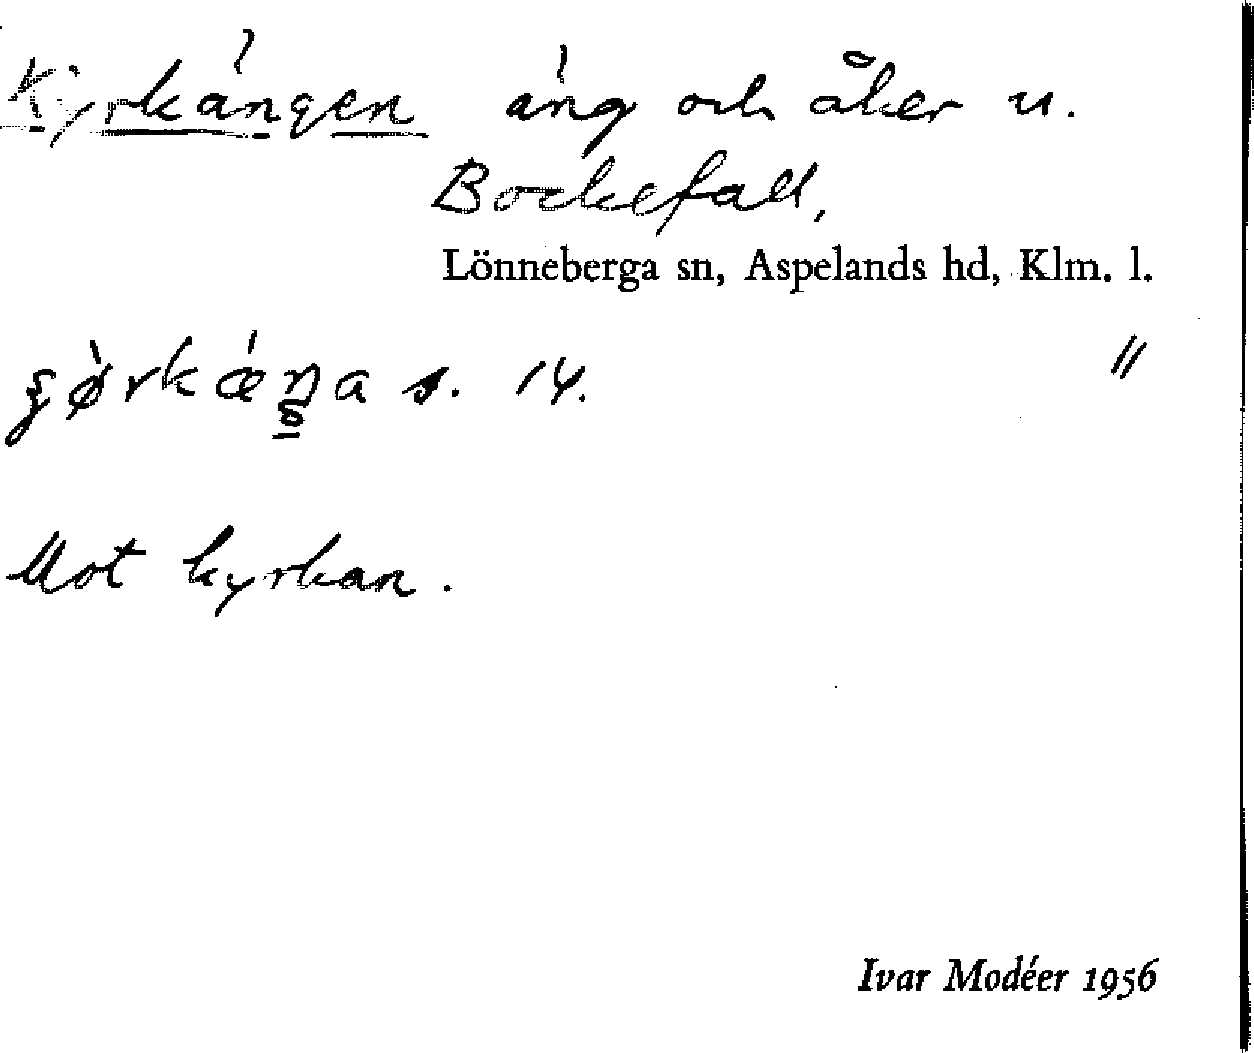 Kyrkängen äng och åker u.
Bockefall,
Lönneberga sn, Aspelands hd, Klm. l.
s. 14. "
Mot kyrkan.
Ivar Modéer 1956